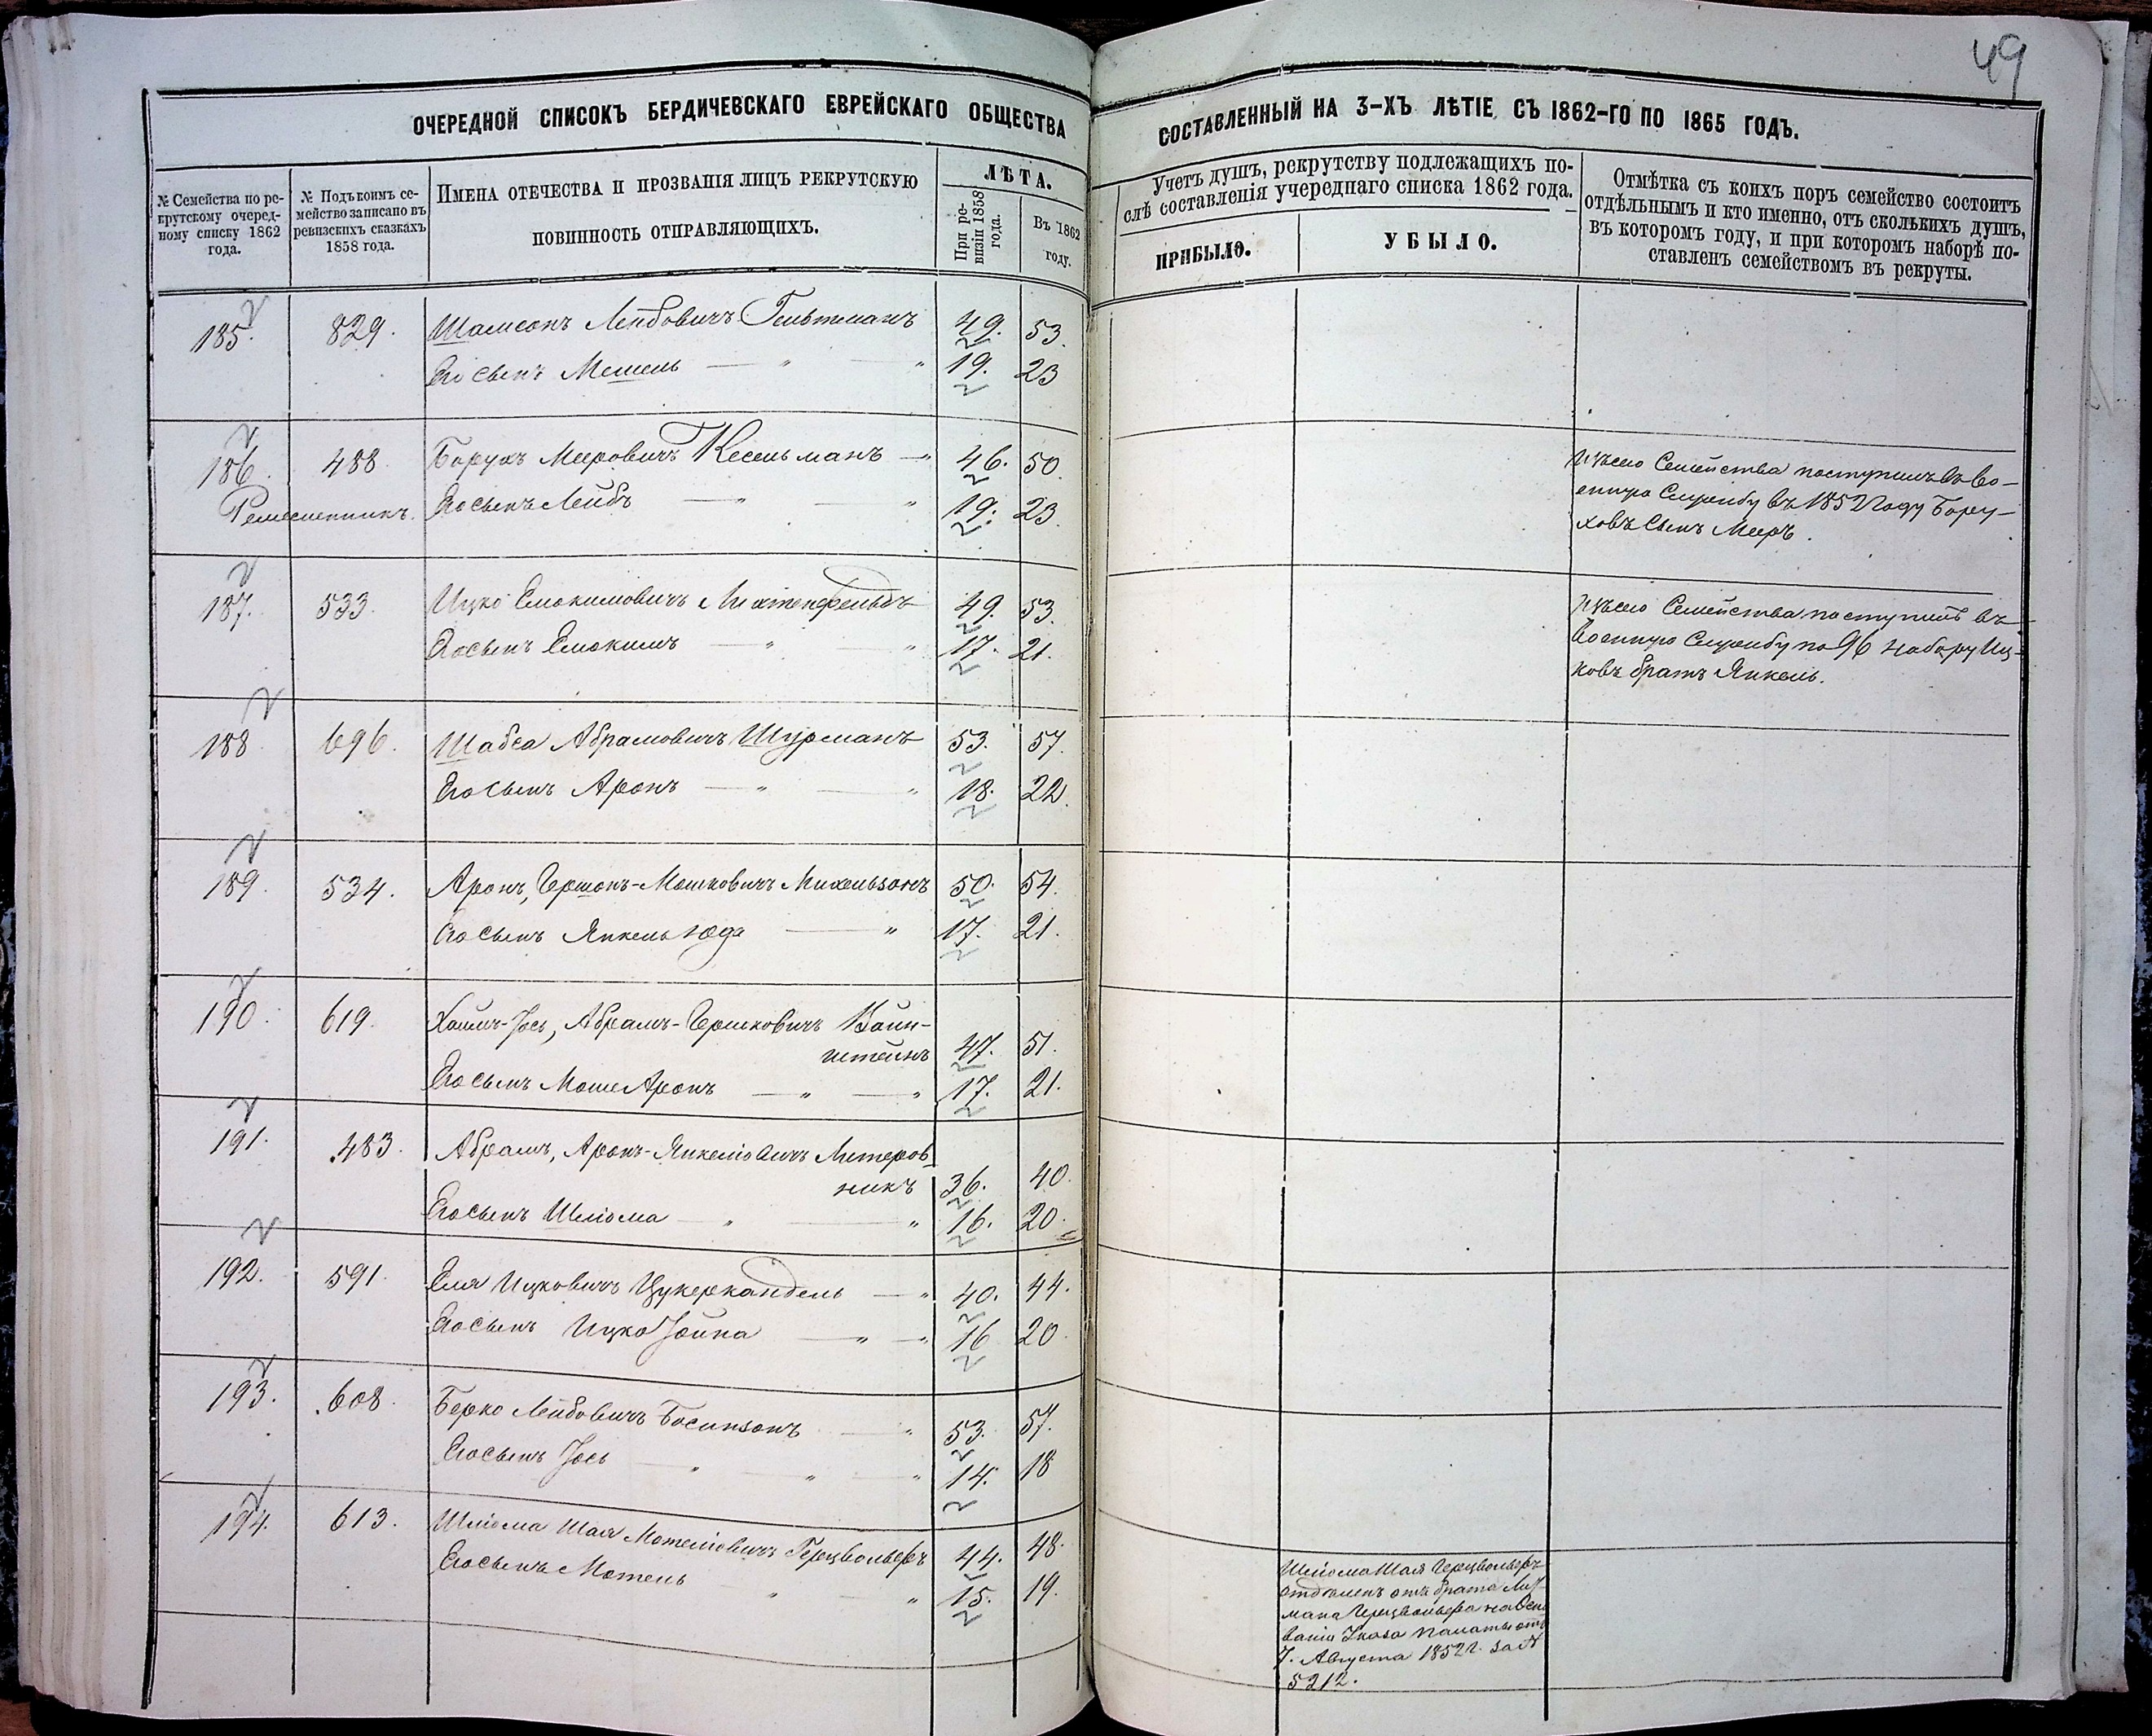 49
ОЧЕРЕДНОЙ СПИСОКЪ БЕРДИЧЕВСКАГО ЕВРЕЙСКАГО ОБЩЕСТВА
№ Семейства по ре-
крутскому очеред-
ному списку 1862
года.
№ Подъ коимъ се-
мейство записано въ
ревизскихъ сказкахъ
1858 года.
ИМЕНА ОТЕЧЕСТВА И ПРОЗВАНІЯ ЛИЦЪ РЕКРУТСКУЮ
ПОВИННОСТЬ ОТПРАВЛЯЮЩИХЪ.
ЛѢТА.
При ре-
визіи 1858
года.
Въ 1862
году.
185. 829. Шамсонъ Лейбовичъ Гельтманъ 49. 53.
Его сынъ Мешель 19. 23
186. 488. Борухъ Мееровичъ Кесельманъ 46. 50.
Ремесленникъ. Его сынъ Лейбъ 19. 23.
187. 533. Ицко Елюкимовичъ Лихтенфельдъ 49. 53.
Его сынъ Елюкимъ 17. 21.
188. 696. Шабса Абрамовичъ Шурманъ 53. 57.
Его сынъ Аронъ 18. 22.
189. 534. Аронъ, Гершонъ-Мошковичъ Михельзонъ 50. 54.
Его сынъ Янкель Юда 17. 21.
190. 619. Хаимъ-Іось, Абрамъ-Гершковичъ Вайн-
штейнъ 47. 51.
Его сынъ Моше Аронъ 17. 21.
191. 483. Абрамъ, Аронъ-Янкеліовичъ Литеров-
никъ 36. 40.
Его сынъ Шліома 16. 20.
192. 591. Еля Ицковичъ Цукеркандель 40. 44.
Его сынъ Ицко Іойна 16 20.
193. 608. Берко Лейбовичъ Босинзонъ 53. 57.
Его сынъ Іось 14. 18
194. 613. Шліома Шая Мотеліовичъ Герцвольфъ 44. 48.
Его сынъ Мотель 15. 19.
СОСТАВЛЕННЫЙ НА 3-ХЪ ЛѢТІЕ СЪ 1862-ГО ПО 1865 ГОДЪ.
Учетъ душъ, рекрутству подлежащихъ по-
слѣ составленія учереднаго списка 1862 года.
ПРИБЫЛО.
УБЫЛО.
Отмѣтка съ коихъ поръ семейство состоитъ
отдѣльнымъ и кто именно, отъ сколькихъ душъ,
въ которомъ году, и при которомъ наборѣ по-
ставленъ семействомъ въ рекруты.
Изъ сего Семейства поступилъ въ Во-
енную Службу въ 1852 году Бору-
ховъ Сынъ Мееръ.
Изъ сего Семейства поступилъ въ
Военную Службу по 96 набору Иц-
ковъ братъ Янкель.
Шліома Шая Герцвольфъ
отдѣленъ отъ брата Лит-
мана Герцвольфа на Осно
ваніи Указа палаты отъ
7. Августа 1852 г. за №
5212.